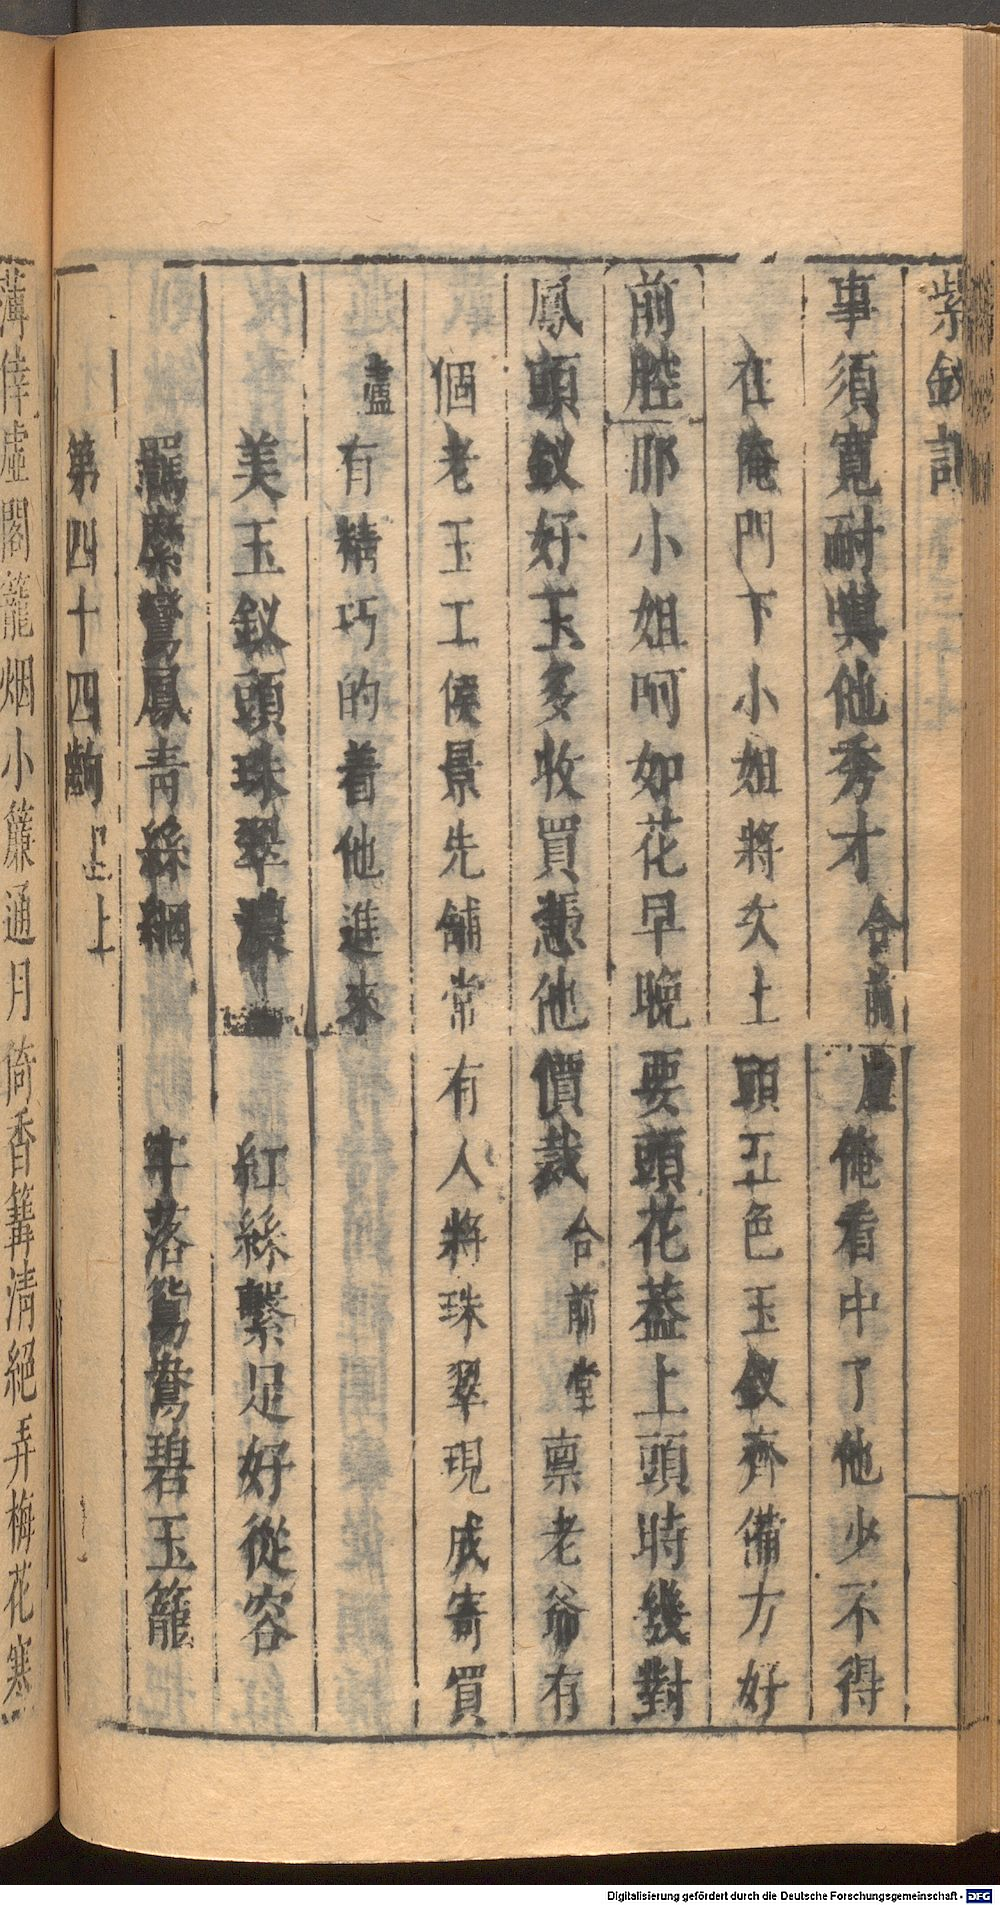 紫釵記
事須寬耐嘆他秀才 合前 盧俺看中了他少不得
在俺門下小姐將次上頭五色玉釵齊備方好
前腔 那小姐呵如花早晚要頭花蓋上頭時幾對
鳳頭釵好玉多收買憑他價裁 合前 堂稟老爺有
個老玉工侯景先舖常有人將珠翠現成寄買
盧有精巧的着他進來
美玉釵頭珠翠濃 紅絲繫足好從容
羈縻鸞鳳青絲網 牢落鴛鴦碧玉籠
第四十四齣 上上
薄倖虛閣籠烟小簾通月倚香篝清絕弄梅花寒
Digitalisierung gefördert durch die Deutsche Forschungsgemeinschaft - DFG